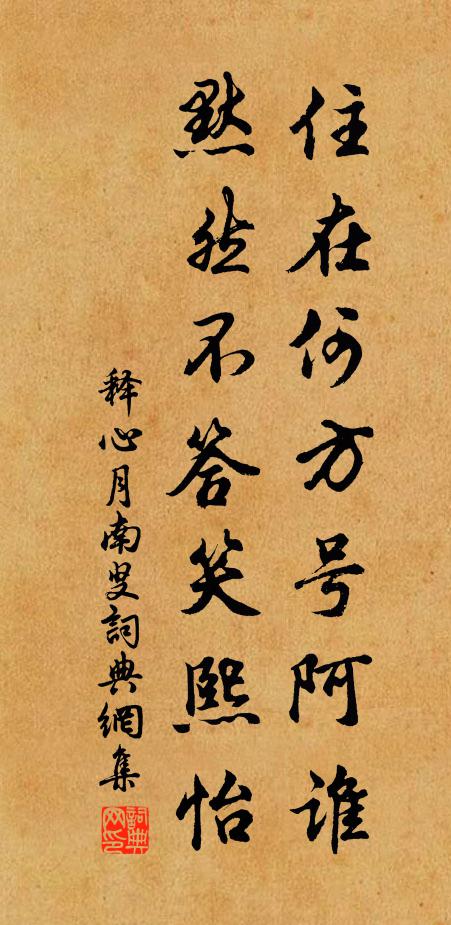 住在何方号阿谁
默然不答笑熙怡
释心月南叟詞典網集
詞典网印